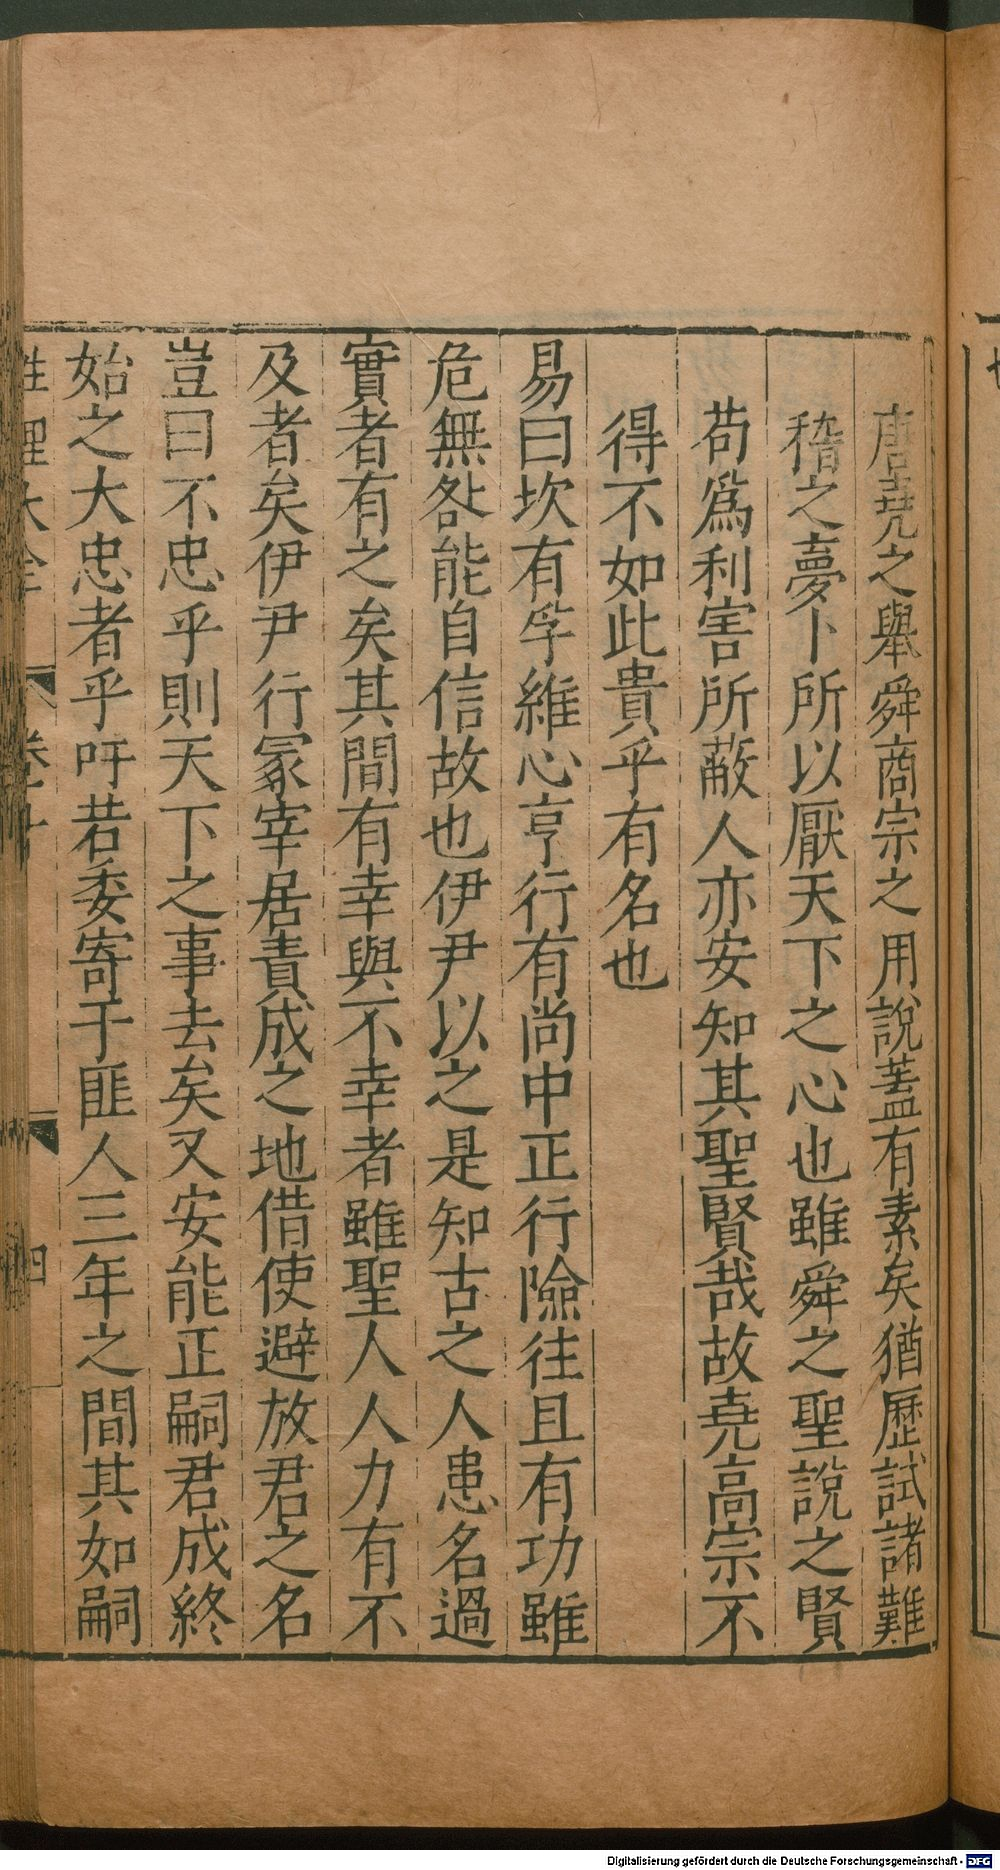 唐堯之舉舜商宗之用說蓋有素矣猶歷試諸難
稽之夢卜所以厭天下之心也雖舜之聖說之賢
苟爲利害所蔽人亦安知其聖賢哉故堯高宗不
得不如此貴乎有名也
易曰坎有孚維心亨行有尚中正行險往且有功雖
危無咎能自信故也伊尹以之是知古之人患名過
實者有之矣其間有幸與不幸者雖聖人人力有不
及者矣伊尹行冢宰居責成之地借使避放君之名
豈曰不忠乎則天下之事去矣又安能正嗣君成終
始之大忠者乎吁若委寄于匪人三年之間其如嗣
性理大全
四
Digitalisierung gefördert durch die Deutsche Forschungsgemeinschaft - DFG